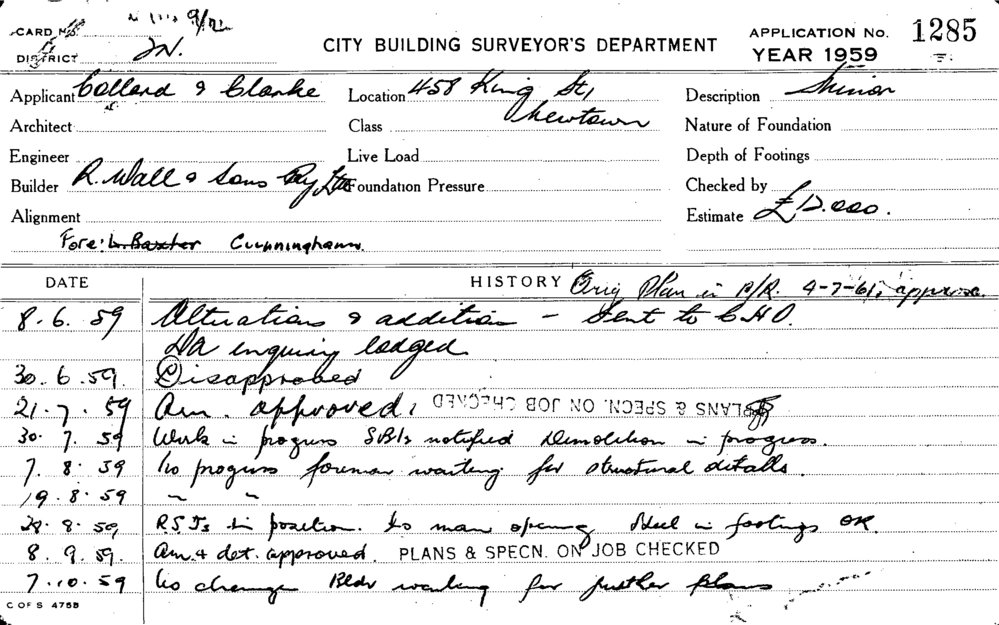 CARD No. 9/12
DISTRICT N.
CITY BUILDING SURVEYOR'S DEPARTMENT
APPLICATION No. 1285
YEAR 1959
Applicant Collard & Clarke Location 458 King St, Description Minor
Architect Class Newtown Nature of Foundation
Engineer Live Load Depth of Footings
Builder R. Wall & Sons Pty Ltd Foundation Pressure Checked by
Alignment Estimate £12.000.
Fore: Baxter Cunningham.
DATE HISTORY Orig Plan in P/R. 4-7-61,
8.6.59 Alterations & addition - Sent to CHO.
DA enquiry lodged
30.6.59. Disapproved
21.7.59 Am. approved, PLANS & SPECN. ON JOB CHECKED
30.7.59 Work in progress SBIs notified Demolition in progress.
7.8.59 No progress foreman waiting for structural details.
19.8.59 " "
28.8.59 RSJs in position. to main opening Steel in footings OK
8.9.59. Am. & det. approved. PLANS & SPECN. ON JOB CHECKED
7.10.59 No change Bldr waiting for further plans
C OF S 475B